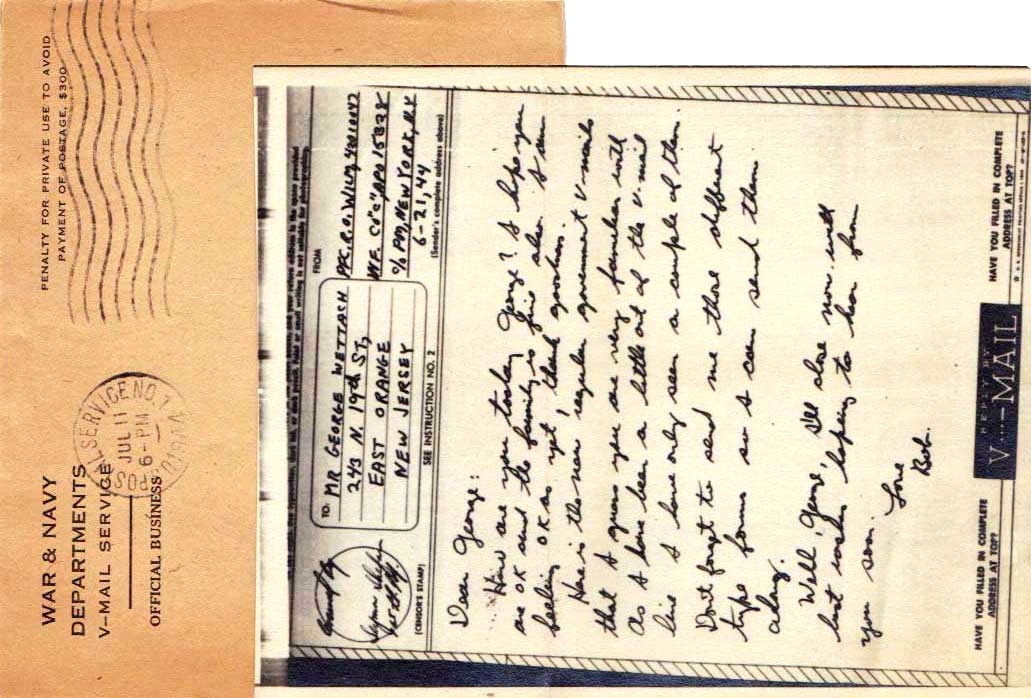 WAR & NAVY
DEPARTMENTS
V–MAIL SERVICE
OFFICIAL BUSINESS
PENALTY FOR PRIVATE USE TO AVOID
PAYMENT OF POSTAGE, $300
POSTAL SERVICE NO. 1
JUL 11
6-PM
1944
TO: MR GEORGE WETTASH
243 N. 19th ST,
EAST ORANGE
NEW JERSEY
FROM
PFC. R.O. WILM,
"C" APO 15328
c/o PM, NEW YORK, N.Y
6-21,44
(Sender's complete address above)
(CENSOR'S STAMP)
SEE INSTRUCTION NO. 2
Dear George:
How are you today George? I hope you
are OK and the family is fine also. I am
feeling OK as yet, thank goodness.
Here is the new regular government V-mails
that I guess you are very familiar with
As I have been a little out of the V-mail
line I have only seen a couple of them.
Dont forget to send me those different
type forms so I can send them
along.
Well, George, I'll close now with
best wishes hoping to hear from
you soon.
Love
Bob.
HAVE YOU FILLED IN COMPLETE
ADDRESS AT TOP?
REPLY BY
V···–MAIL
HAVE YOU FILLED IN COMPLETE
ADDRESS AT TOP?